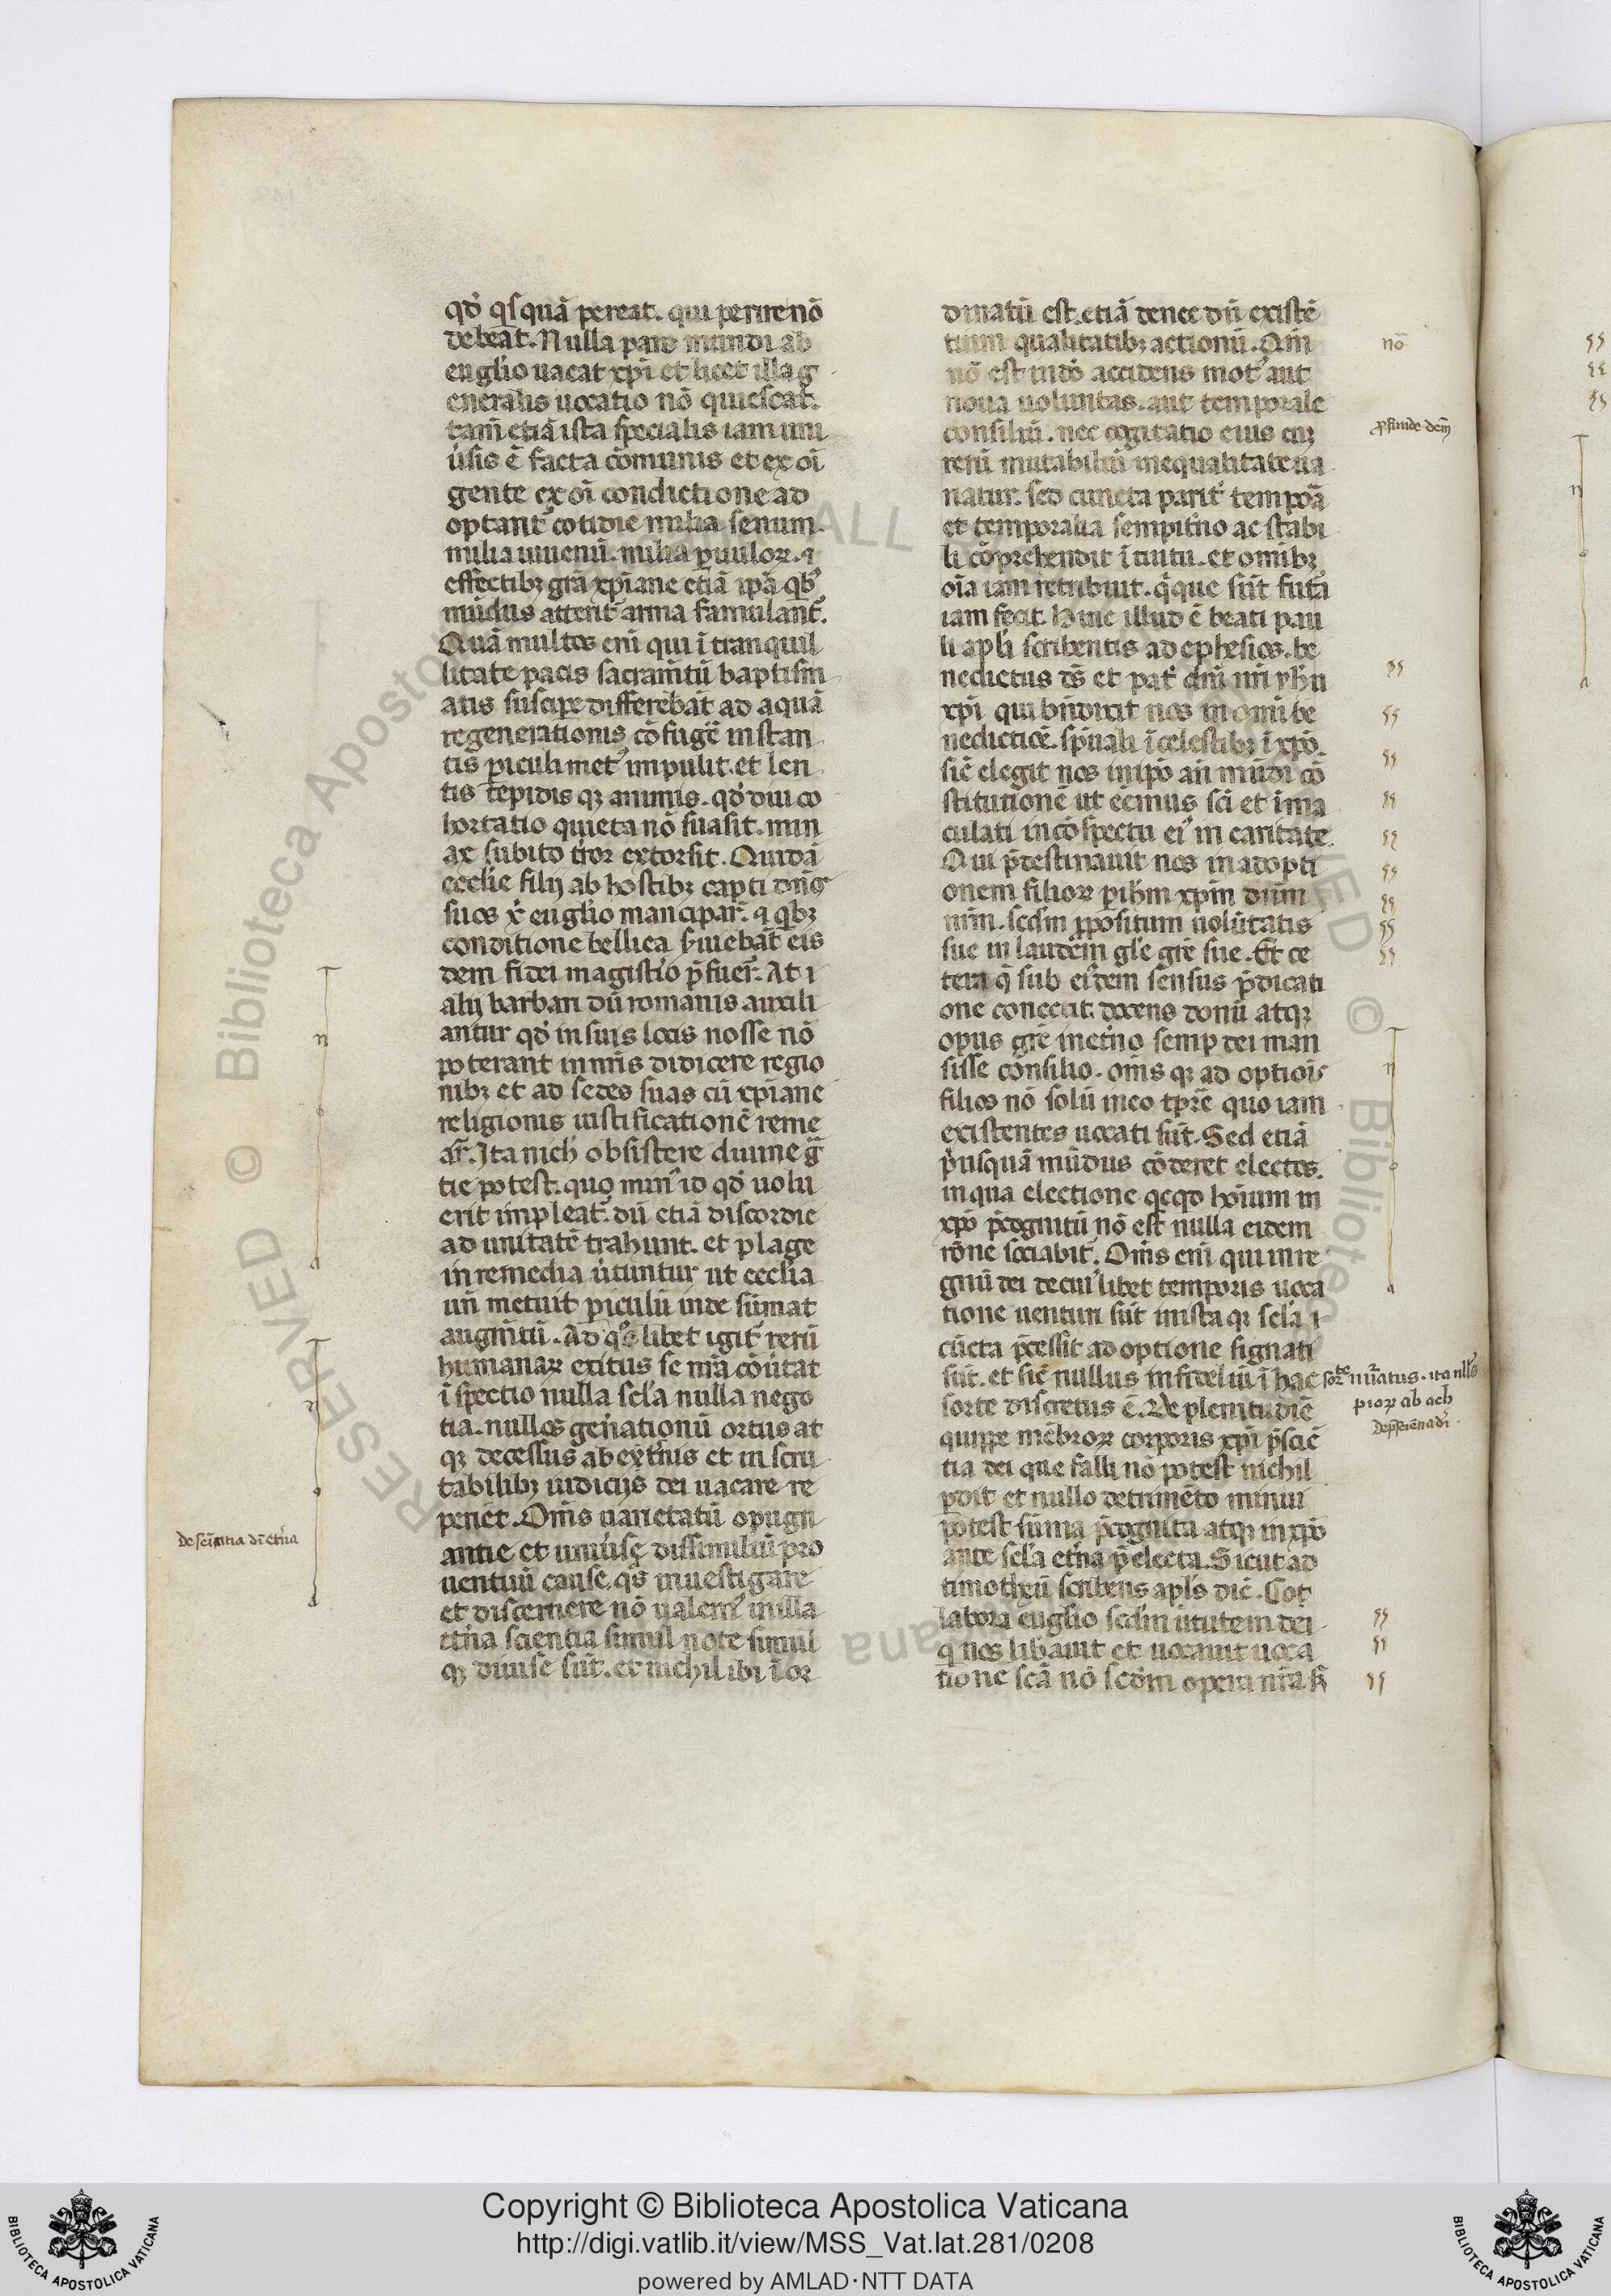 qđ qsquā pereat. qui perire nō
debeāt. Nulla pars mundi ab
euglio uacat xpi et licet illa g
eneralis uocatio nō quiescat.
tam̄ etiā ista specialis iam uni
ūsis ē facta cōmunis et ex oī
gente ex oī condictione ad
optant᷒ cotidie milia senum.
milia iuuenū. milia puuloꝝ. ⁊
effectibꝫ grā xpiane etiā ipā qbꝰ
mūdus atterit᷒ arma famulant᷒.
Quā multos eni qui ī tranquil
litate pacis sacram̄tū baptism
atis suscipe differebāt ad aquā
regenerationis cōfuge᷒ instan
tis piculi metꝰ impulit. et len
tis tepidis qꝫ animis. qđ diu co
hortatio quieta nō suasit. min
ax subito t᷒ror extorsit. Quidā
ecclie filij ab hostibꝫ capti dn̄os
suos x̄ euglio mancipar᷒. ⁊ qbꝫ
conditione bellica s᷒uiebāt eis
dem fidei magist᷒io p̄fuer᷒. At ⁊
alij barbari dū romanis auxili
antur qđ in suis locis nosse nō
poterant in nr̄is didicere regio
nibꝫ et ad sedes suas cū xpiane
religionis iustificationē reme
ar᷒. Ita nich obsistere diuine g̅
tie potest. quo minꝰ id qđ uolu
erit impleat᷒. dū etiā discordie
ad unitatē trahunt. et plage
in remedia ūtuntur ut ecclīa
un̄ metuit piculū inde sūmat
augm̄tū. Ad qꝰslibet igit᷒ rerū
humanaꝝ exitus se nr̄a cōūtat
īspectio nulla scl̄a nulla nego
tia. nullos gen̄ationū ortus at
qꝫ decessus ab ext᷒nis et inscru
tabilibꝫ iudicijs dei uacare re
periet. Om̄is uarietatū opugn
antie et uniūse dissimiliū pro
uentuū cause. qs inuestigare
et discernere nō ualemꝰ in illa
et᷒na scientia simul note simul
qꝫ diuise sūt. et nichil ibi ī or
dinatū est. etiā de nec dū existē
tium qualitatibꝫ actionū. Qm̄
nō est in dō accidens motꝰ aut
noua uoluntas. aut temporale
consiliū. nec cogitatio eius cū
rerū mutabiliū inequalitate ua
riatur. sed cuncta parit᷒ tempoā
et temporalia sempit᷒no ac stabi
li cōprehendit ītuitu. et om̄ibꝫ
oīa iam retribuit. q̄que sūt futā
iam fecit. Hinc illud ē beati pau
li apl̄i scribentis ad ephesios. be
nedictus d̄s et pat᷒ dn̄i nr̄i yh̄u
xpī qui bn̄dixit nos in omi be
nedictiōe. sp̄uali ī celestibꝫ ī xpō.
sic̄ elegit nos in ipō an̄ mūdi cō
stitutionē ut eēmus sc̄i et īma
culati in cōspectu eiꝰ in caritate
Qui p̄destinauit nos in adopti
onem filioꝝ p ih̄m xpm dn̄m
nr̄m. scd̄m ppositum uolūtatis
sue in laudem gl̄e gr̄e sue. Et ce
tera q̄ sub eiꝰdem sensus p̄dicati
one conectit. docens donū atqꝫ
opus gr̄e in et᷒no semp dei man
sisse consilio. omis qꝫ adoptiois
filios nō solū in eo tpr̄e quo iam
existentes uocati sūt. Sed etiā
p᷒usquā mūdus cōderet᷒ electos.
in qua electione qcqd hoīum in
xpō p̄cognitū nō est nulla eidem
rōne sociabit᷒. Om̄is eni qui in re
gnū dei de cuiꝰlibet temporis uoca
tione uenturi sūt in ista qꝫ scl̄a ⁊
cūcta p̄cessit adoptione signati
sūt. et sic̄ nullus infideliū ī hac
sorte discretus ē. De plenitudīe
quippe mēbroꝝ corporis xpī p̄sciē
tia dei que falli nō potest nichil
pdit et nullo detrimēto minui
potest sūma p̄cognita atqꝫ in xpō
ante scl̄a et᷒na p̄electa. Sicut ad
timotheū scribens apl̄s dic̄. Col
labora euglio scd̄m ūtutem dei
q nos lib᷒auit et uocauit uoca
tione scā nō scdm opera nr̄a s̄
nō
de sciētia di et᷒na
n
o
a
n
o
a
n
o
a
Copyright © Biblioteca Apostolica Vaticana
http://digi.vatlib.it/view/MSS_Vat.lat.281/0208
powered by AMLAD·NTT DATA
BIBLIOTECA APOSTOLICA VATICANA
BIBLIOTECA APOSTOLICA VATICANA